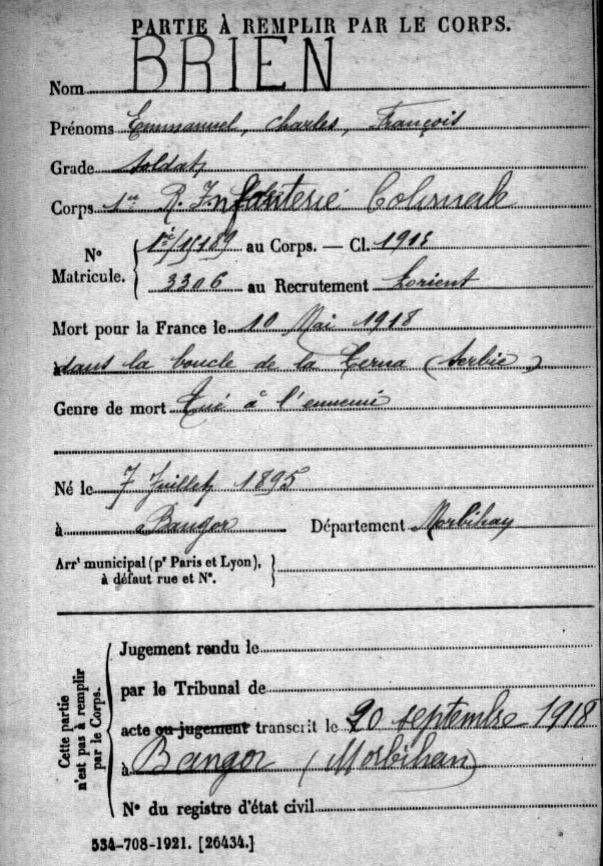 PARTIE À REMPLIR PAR LE CORPS.
Nom BRIEN
Prénoms Emmanuel, Charles, François
Grade Soldat
Corps 1er R. Infanterie Coloniale
N° Matricule. au Corps. — Cl. 1915
3306 au Recrutement Lorient
Mort pour la France le 10 Mai 1918
dans la boucle de la Cerna (Serbie)
Genre de mort Tué à l'ennemi
Né le 7 Juillet 1895
à Bangor Département Morbihan
Arrt municipal (pr Paris et Lyon), à défaut rue et N°.
Cette partie n'est pas à remplir par le Corps.
Jugement rendu le
par le Tribunal de
acte ou jugement transcrit le 20 septembre 1918
à Bangor (Morbihan)
N° du registre d'état civil
534-708-1921. [26434.]